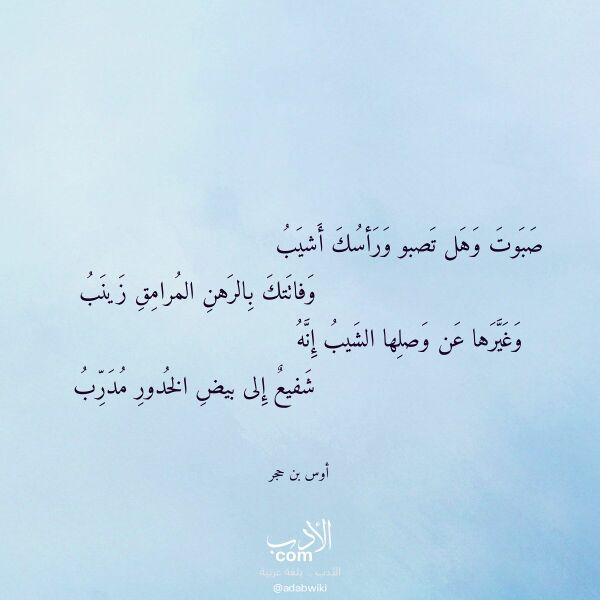 صَبَوتَ وَهَل تَصبو وَرَأسُكَ أَشيَبُ
وَفاتَتكَ بِالرَهنِ المُرامِقِ زَينَبُ
وَغَيَّرَها عَن وَصلِها الشَيبُ إِنَّهُ
شَفيعٌ إِلى بيضِ الخُدورِ مُدَرِّبُ
أوس بن حجر
الأدب
com
الأدب .. بلغة عربية
@adabwiki